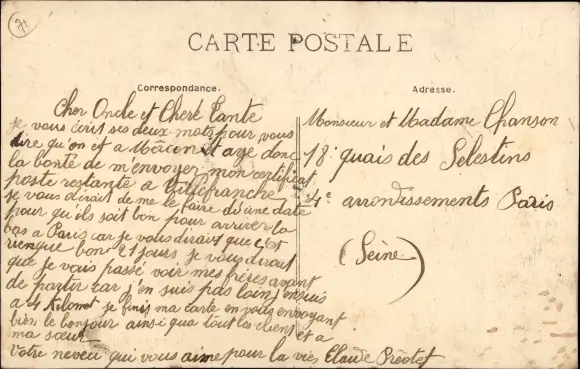 71
CARTE POSTALE
Correspondance.
Cher Oncle et Cherè Tante
je vous écrit ses deux mots pour vous
dire qu'on et a Mâcon St aye donc
la bonté de m'envoyer mon certificat
poste restante a Villefranche
je vous dirait de me le faire du une date
pour qu'ils sait bon pour arriver la
bas a Paris car je vous dirait que c'est
rienque bon 21 jours je vous dirait
que je vais passé voir mes frères avant
de partir car j'en suis pas loin j'en suis
a 4 Kilomet je finis ma carte en vous envoyant
bien le bonjour ainsi qua tout les clients et a
ma sœur
Votre neveu qui vous aime pour la vies Claude
Adresse.
Monsieur et Madame Chanson
18 quais des Selestins
4e arrondissements Paris
(Seine)